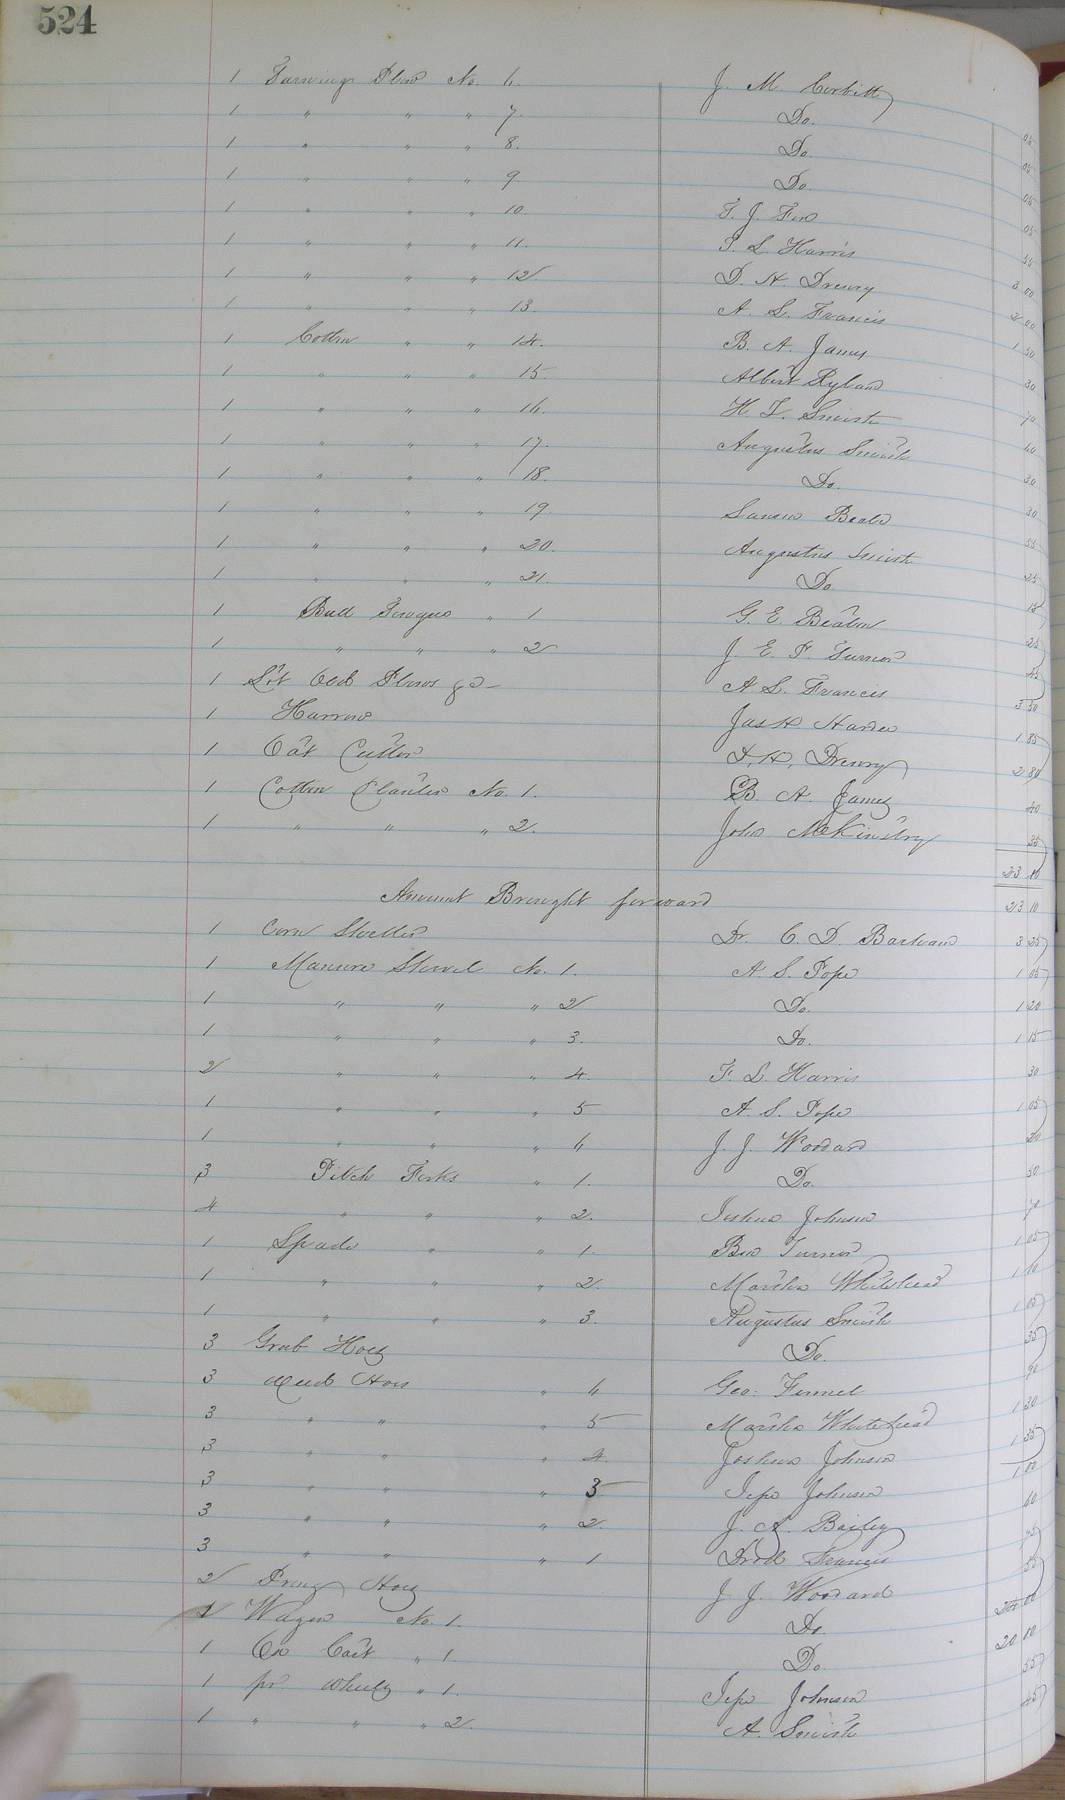 524
1 Turning Plow No. 6. J. M. Corbitt
1 " " " 7. Do. 05
1 " " " 8. Do. 05
1 " " " 9 Do. 05
1 " " " 10 T. J. 05
1 " " " 11. T. L. Harris 55
1 " " " 12 D. H. Drewry 3 00
1 " " " 13. A. L. Francis 2 00
1 Cotton " " 14. B. A. James 1 50
1 " " " 15. Albert Ryland 30
1 " " " 16. H. T. Smith 70
1 " " " 17. Augustus Smith 60
1 " " " 18. Do. 30
1 " " " 19. Beale 30
1 " " " 20. Augustus Smith 55
1 " " " 21. Do 25
1 Bull Tongue " 1 G. E. Beaton 15
1 " " " 2 J. E. F. Turner 25
1 Lot Old Plows &c A. L. Francis 45
1 Harrow Jas H 3 50
1 Oat Cutter D. H. Drewry 1 85
1 Cotton Planter No. 1. B. A. James 2 80
1 " " " 2. John McKinstry 40
35
23 10
Amount Brought forward 23 10
1 Corn Sheller Dr. C. D. Barham 3 25
1 Manure Shovel No. 1. A. S. Pope 1 05
1 " " " 2 Do. 1 20
1 " " " 3. Do. 1 15
2 " " " 4. T. L. Harris 30
1 " " " 5 A. S. Pope 1 05
1 " " " 6 J. J. Woodard 20
3 Pitch Forks " 1. Do. 50
4 " " " 2. Joshua Johnson 70
1 Spade " " 1. Ben Turner 1 05
1 " " " 2. Martha Whitehead 1 10
1 " " " 3. Augustus Smith 1 05
3 Grub Hoes Do. 35
3 Weed Hoes " 6 Geo. Fennel 90
3 " " " 5 Martha Whitehead 1 30
3 " " " 4 Joshua Johnson 1 35
3 " " " 3 Johnson 1 00
3 " " " 2. J. A. Bailey 60
3 " " " 1 Francis 45
2 Prong Hoes J. J. Woodard 55
1 Wagon No. 1. Do. 00
1 Ox Cart " 1. Do. 20 00
1 pr Wheels " 1. Johnson 55
1 " " " 2. A. Smith 45